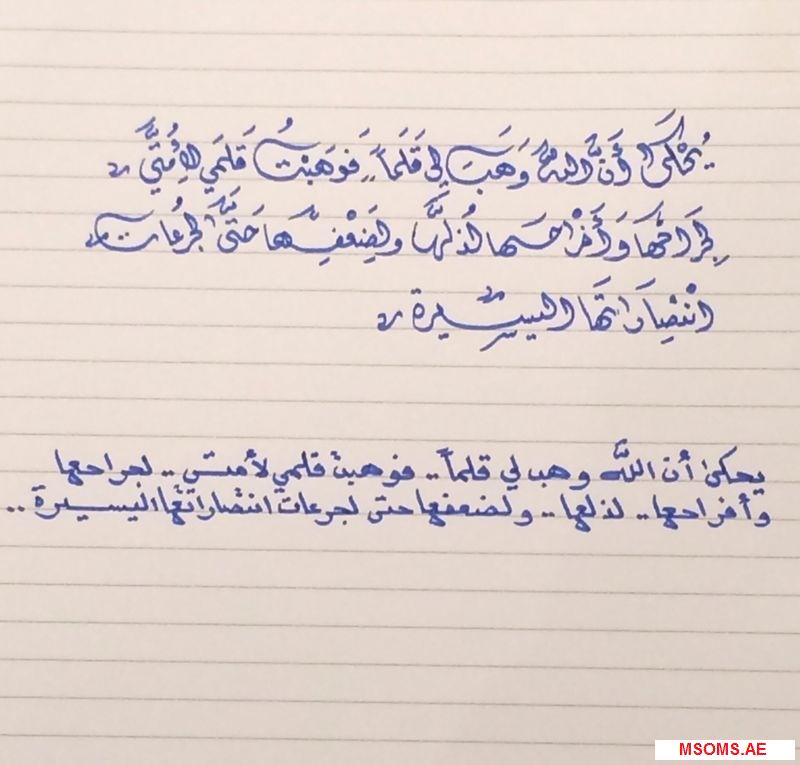 يُحْكَى أَنَّ اللهَ وَهَبَ لِي قَلَماً .. فَوَهَبْتُ قَلَمِي لِأُمَّتِي ..
لِجِرَاحِهَا وَأَفْرَاحِهَا لِذُلِّهَا وَلِضَعْفِهَا حَتَّى لِجُرعَات
انْتِصَارَاتِهَا اليسيرة ..
يحكى أن اللّه وهب لي قلماً .. فوهبت قلمي لأمتي .. لجراحها
وأفراحها .. لذلها .. ولضعفها حتى لجرعات انتصاراتها اليسيرة ..
MSOMS.AE